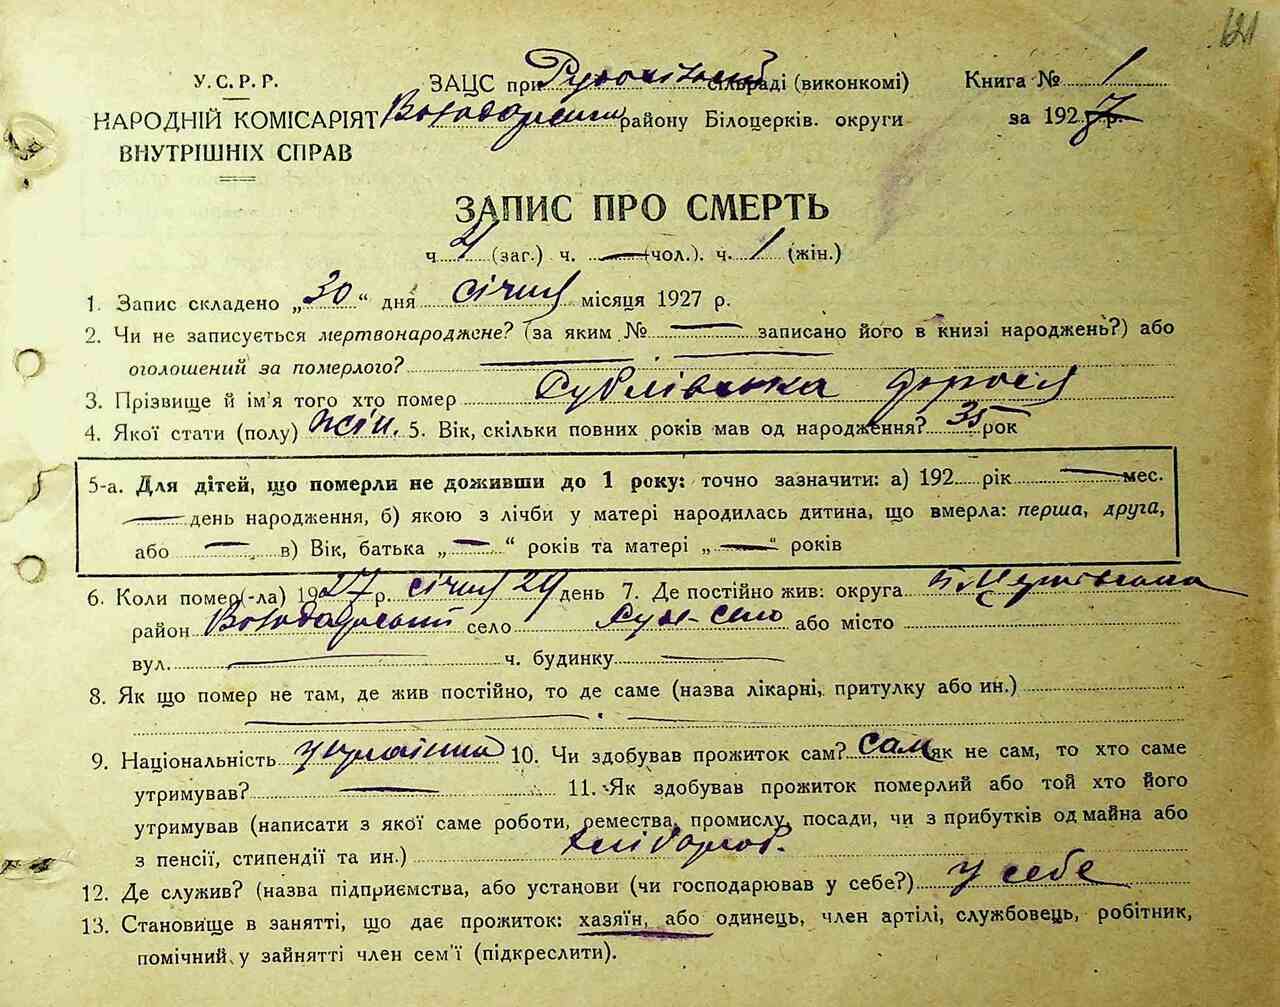 121
У.С.Р.Р.
ЗАЦС при сільраді (виконкомі)
Книга № 1
НАРОДНІЙ КОМІСАРІЯТ
Володарського району Білоцерків. округи
за 1927 р.
ВНУТРІШНІХ СПРАВ
ЗАПИС ПРО СМЕРТЬ
ч. (заг.) ч. — (чол.). ч. 1 (жін.)
1. Запис складено „30“ дня січня місяця 1927 р.
2. Чи не записується мертвонароджене? (за яким № — записано його в книзі народжень?) або
оголошений за померлого? —
3. Прізвище й ім'я того хто помер
4. Якої стати (полу) жін. 5. Вік, скільки повних років мав од народження? 35 рок
5-а. Для дітей, що померли не доживши до 1 року: точно зазначити: а) 192 рік — мес.
— день народження, б) якою з лічби у матері народилась дитина, що вмерла: перша, друга,
або — в) Вік, батька „—“ років та матері „—“ років
6. Коли помер(-ла) 1927 р. січня 29 день 7. Де постійно жив: округа Б. Церківська
район Володарський село або місто
вул. — ч. будинку —
8. Як що помер не там, де жив постійно, то де саме (назва лікарні, притулку або ин.)
9. Національність 10. Чи здобував прожиток сам? сам як не сам, то хто саме
утримував? — 11. Як здобував прожиток померлий або той хто його
утримував (написати з якої саме роботи, ремества, промислу, посади, чи з прибутків од майна або
з пенсії, стипендії та ин.) хлібороб.
12. Де служив? (назва підприємства, або установи (чи господарював у себе?) у себе
13. Становище в занятті, що дає прожиток: хазяїн, або одинець, член артілі, службовець, робітник,
помічний у зайнятті член сем'ї (підкреслити).